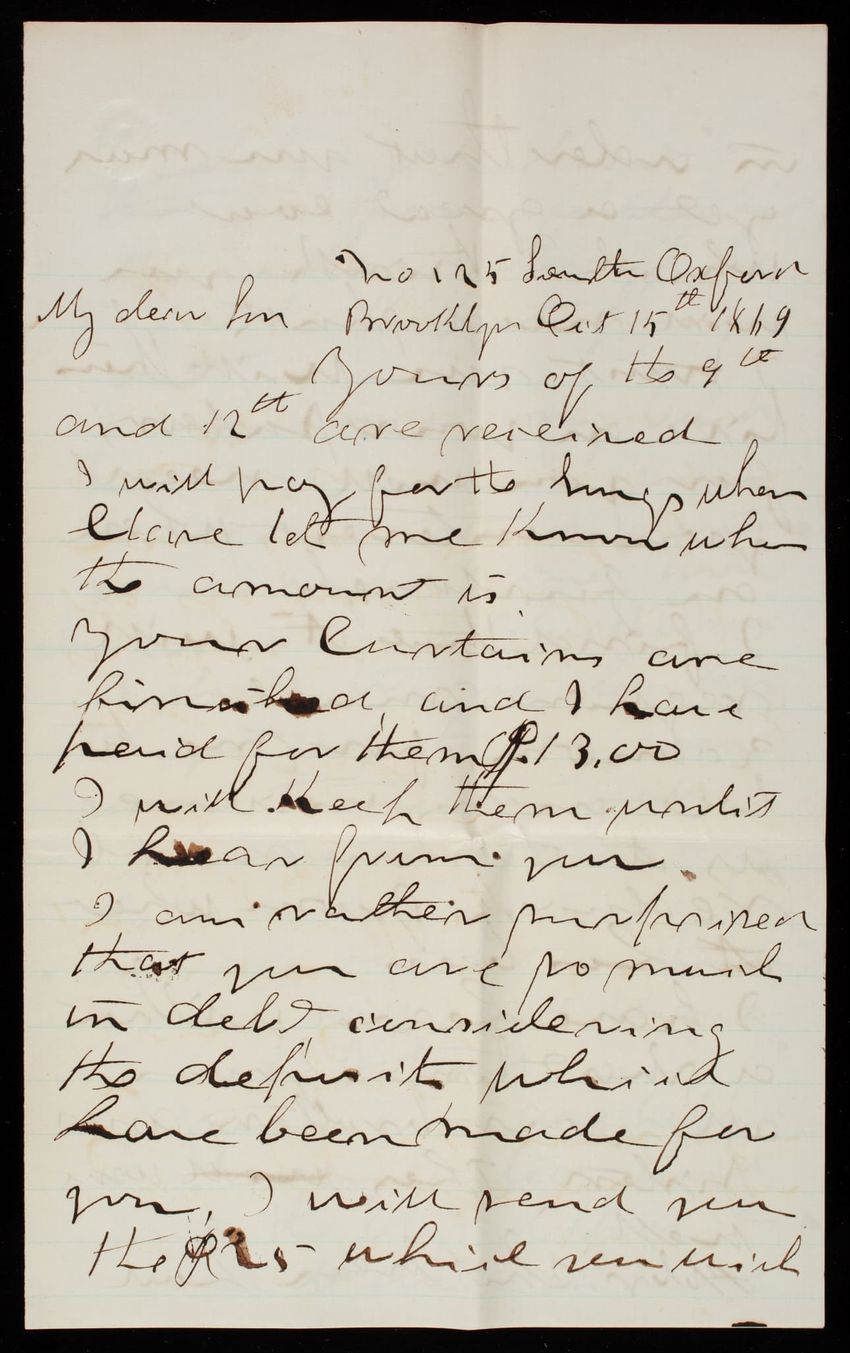 No 125 South Oxford
My dear Son Brooklyn Oct 15th 1869
Yours of the 9th
and 12th are received
I will pay for the things when
Clare let me know when
the amount is
Your Curtains are
finished, and I have
paid for them $13.00
I will Keep them until
I hear from you.
I am rather surprised
that you are so much
in debt, considering
the deposits which
have been made for
you, I will send you
the $25 which you wish